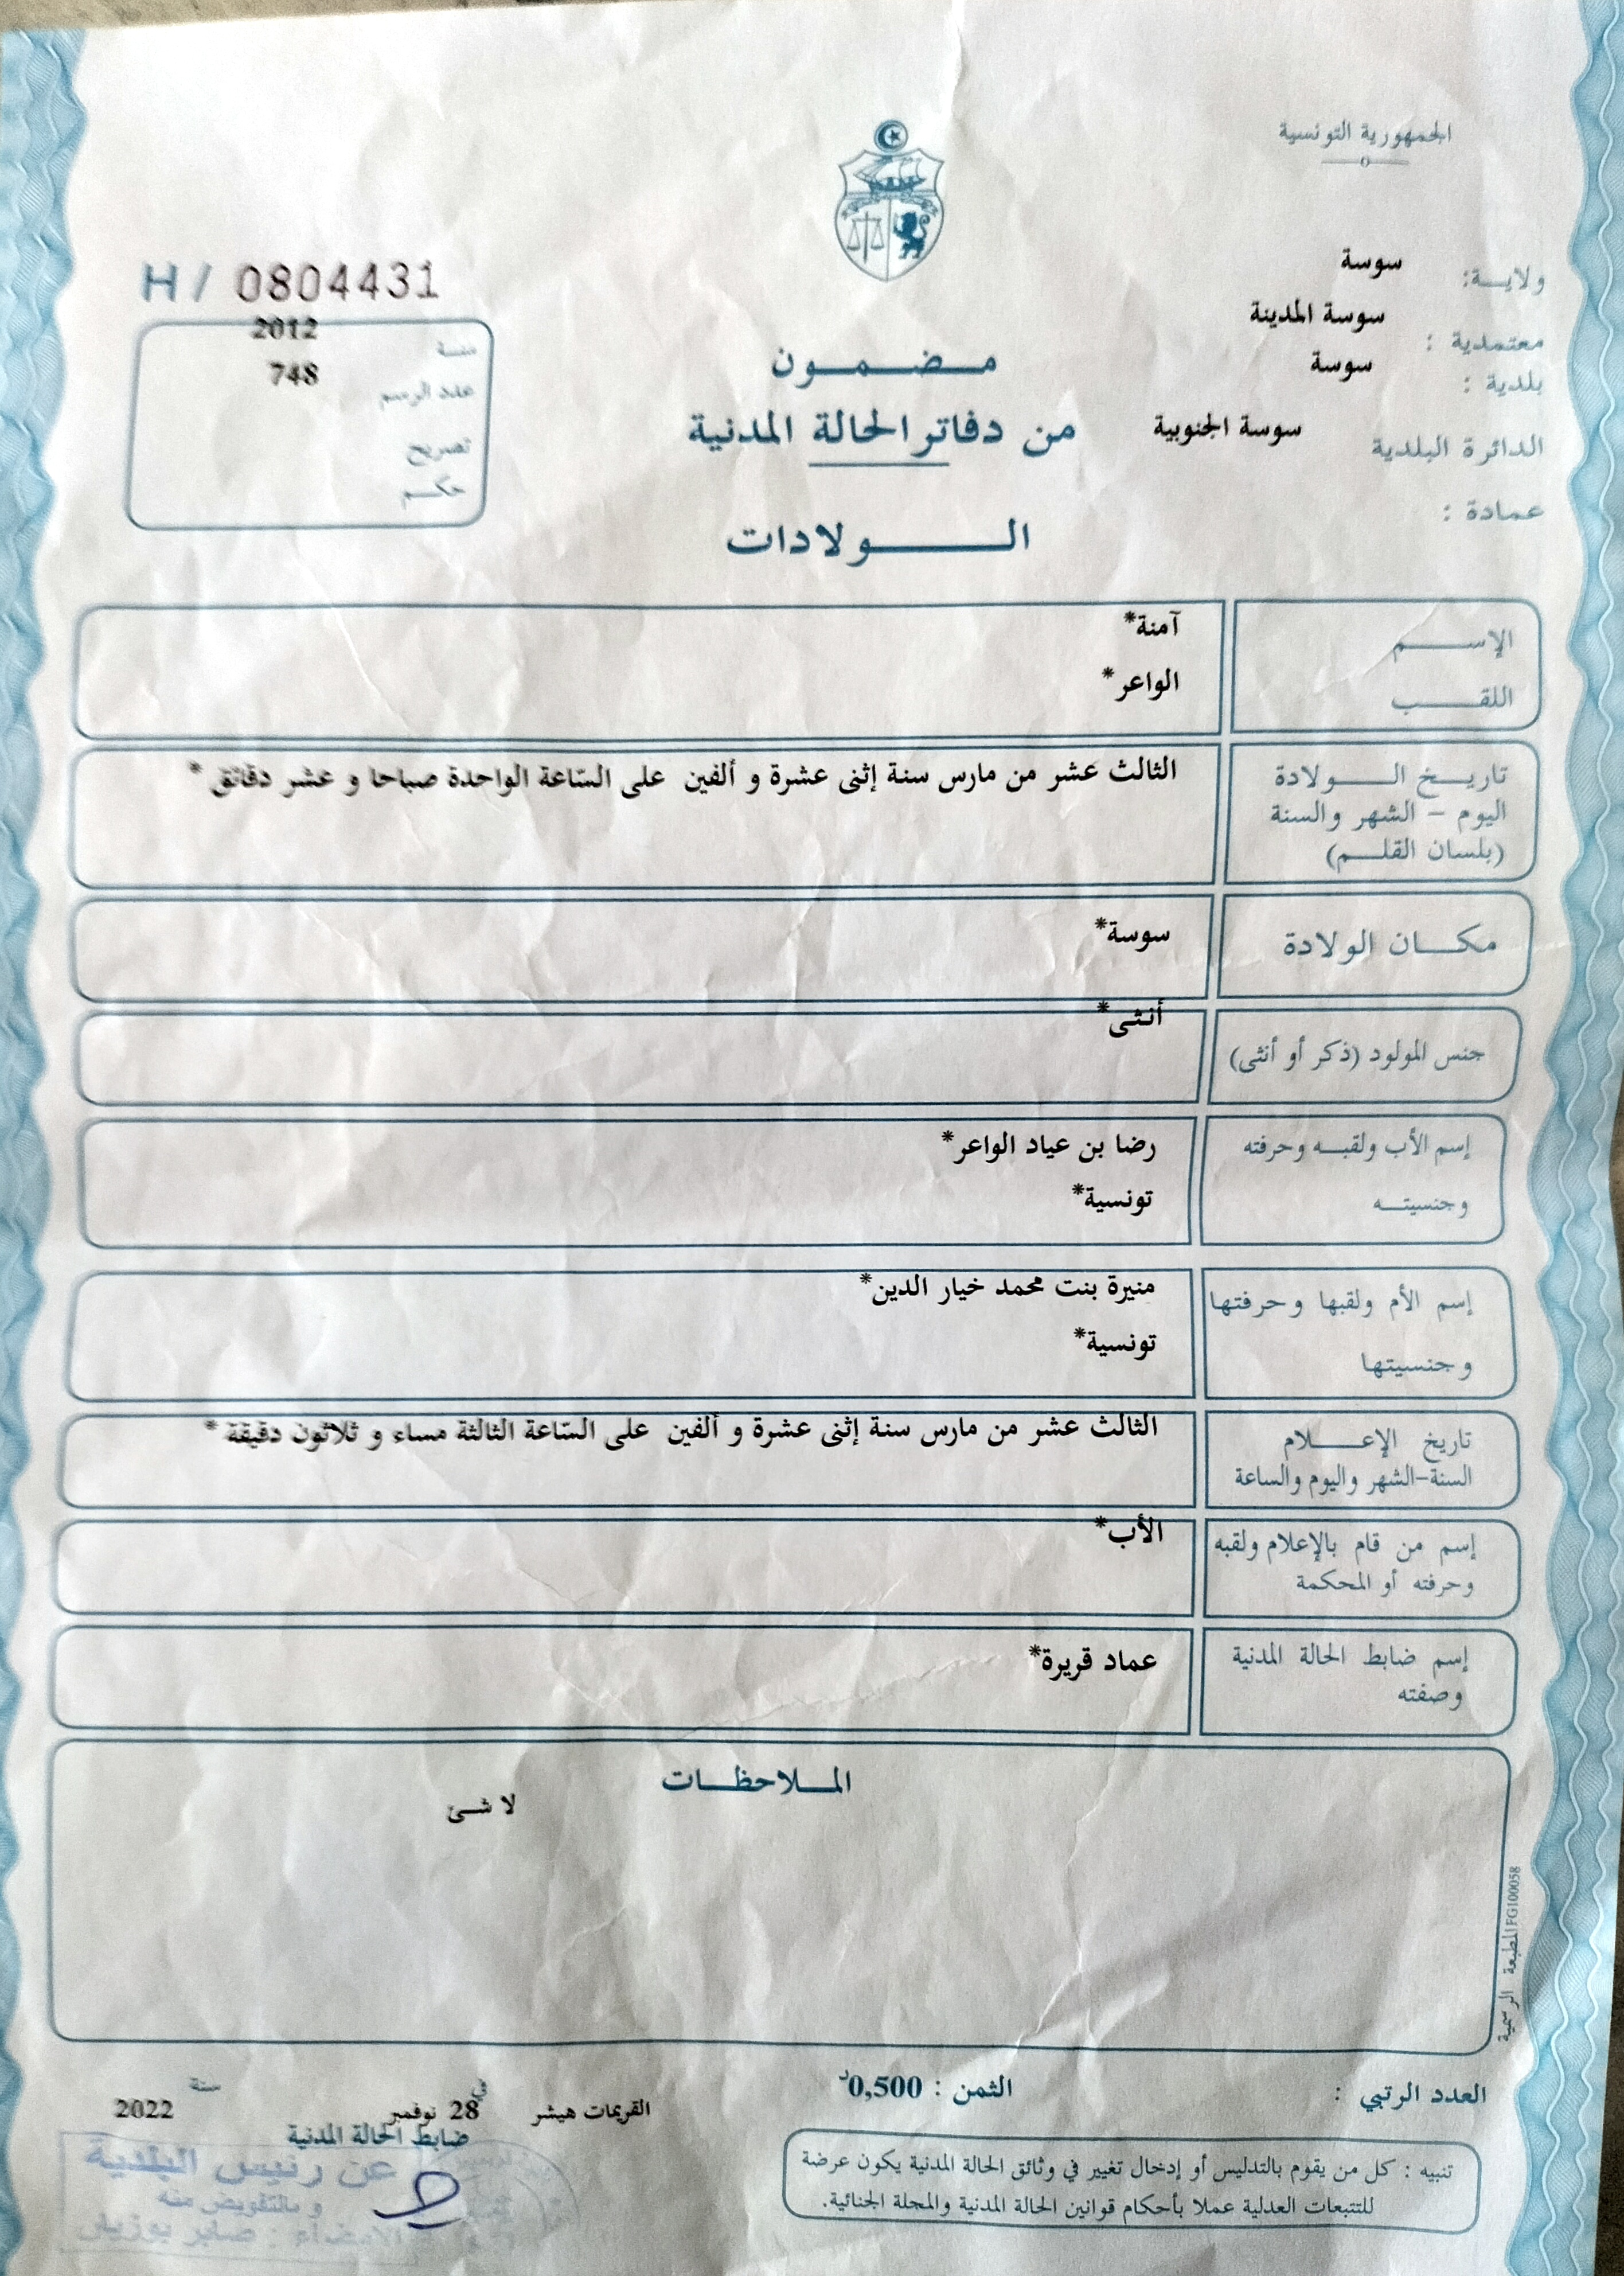 الجمهورية التونسية
ولاية: سوسة
معتمدية : سوسة المدينة
بلدية : سوسة
الدائرة البلدية سوسة الجنوبية
عمادة :
H / 0804431
سنة 2012
عدد الرسم 748
تصريح
حكم
مضمون
من دفاتر الحالة المدنية
الولادات
الإسم آمنة*
اللقب الواعر*
تاريخ الولادة الثالث عشر من مارس سنة إثنى عشرة و ألفين على السّاعة الواحدة صباحا و عشر دقائق *
اليوم - الشهر والسنة
(بلسان القلم)
مكان الولادة سوسة*
جنس المولود (ذكر أو أنثى) أنثى*
إسم الأب ولقبه وحرفته رضا بن عياد الواعر*
وجنسيته تونسية*
إسم الأم ولقبها وحرفتها منيرة بنت محمد خيار الدين*
وجنسيتها تونسية*
تاريخ الإعلام الثالث عشر من مارس سنة إثنى عشرة و ألفين على السّاعة الثالثة مساء و ثلاثون دقيقة *
السنة-الشهر واليوم والساعة
إسم من قام بالإعلام ولقبه الأب*
وحرفته أو المحكمة
إسم ضابط الحالة المدنية عماد قريرة*
وصفته
الملاحظات
لا شئ
المطبعة الرسمية FG100058
العدد الرتبي :
الثمن : 0,500د
القريمات هيشر في 28 نوفمبر سنة 2022
ضابط الحالة المدنية
عن رئيس البلدية
و بالتفويض منه
الإمضاء : صابر
تنبيه : كل من يقوم بالتدليس أو إدخال تغيير في وثائق الحالة المدنية يكون عرضة
للتتبعات العدلية عملا بأحكام قوانين الحالة المدنية والمجلة الجنائية.